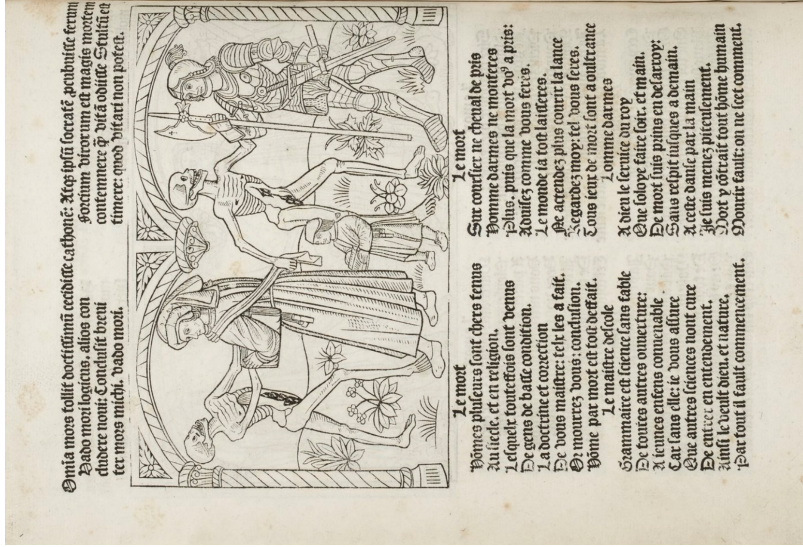 Omnia mors tollit doctissimū cecidisse cathonē: Atqʒ ipsū socratē ꝓcubuisse ferunt
Vado mori logicus, alios con
cludere noui: Conclusit breui
ter mors michi. vado mori.
Fortium virorum est magis mortem
contemnere qͫ vitā odisse Stultū est
timere: quod vitari non potest.
Le mort
Hōmes pluseurs sont chers tenus
Au siecle, et en religion.
Lesquelz touteffois sont venus
De gens de basse condition.
La doctrine et correction
De vous maistre: telz les a fait.
Or mourrez vous: conclusion.
Hōme par mort est tost deffait.
Le maistre descole
Grammaire est science sans fable
De toutes autres ouuerture:
A ieunes enfens conuenable
Car sans elle: ie vous assure
Que autres sciences nont cure
De entrer en entendement.
Ainsi le veult dieu, et nature,
Par tout il fault commencement.
Le mort
Sur coursier ne cheual de pris
Homme darmes ne monteres
Plus, puis que la mort voꝰ a pris:
Aduisez comme vous feres.
Le monde ia tost laisseres.
Ne attendez plus courir la lance
Regardez moy: tel vous seres.
Tous ieux de mort sont a oultrance
Lomme darmes
A dieu le seruice du roy
Que soloye faire soir, et main.
De mort suis prins en desarroy:
Sans respit iusques a demain.
A ceste danse par la main
Je suis menez piteusement.
Mort y cōtraīt tout hōme humain
Mourir fault: on ne scet comment.